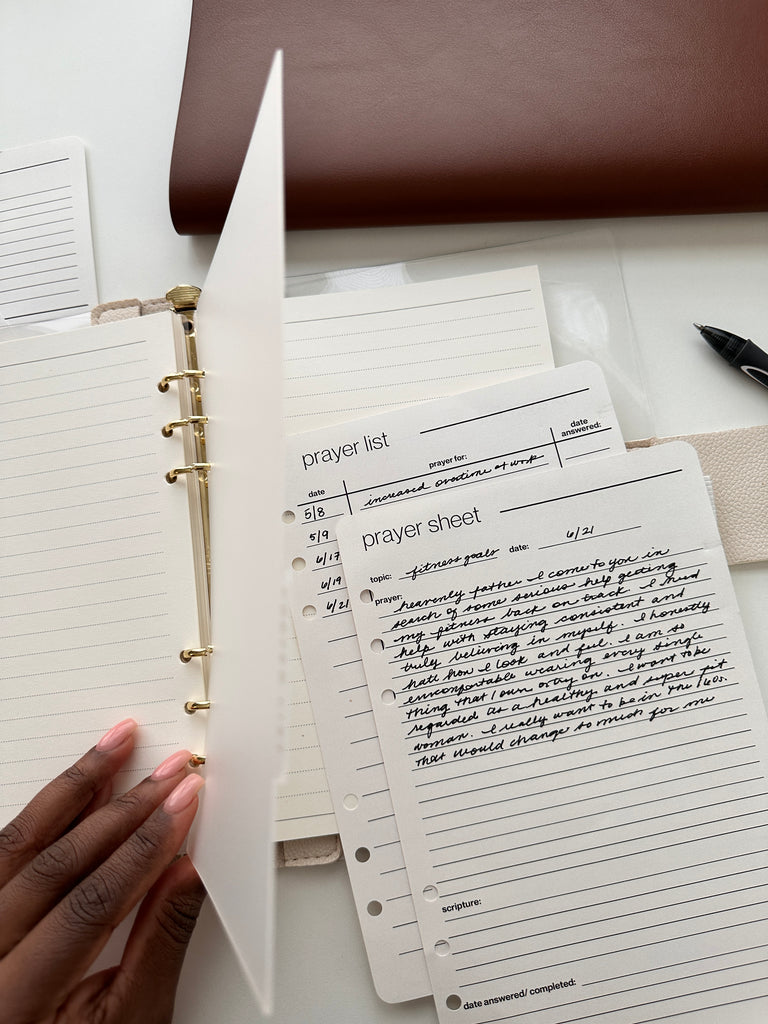 prayer list
date prayer for: date answered:
5/8 increased overtime at work
5/9
6/17
6/19
6/21
prayer sheet
topic: fitness goals date: 6/21
prayer: heavenly father I come to you in
search of some serious help getting
my fitness back on track. I need
help with staying consistent and
truly believing in myself. I honestly
hate how I look and feel. I am so
uncomfortable wearing every single
thing that I own or try on. I want to be
regarded as a healthy and super fit
woman. I really want to be in the 160s.
that would change so much for me
scripture:
date answered/ completed: